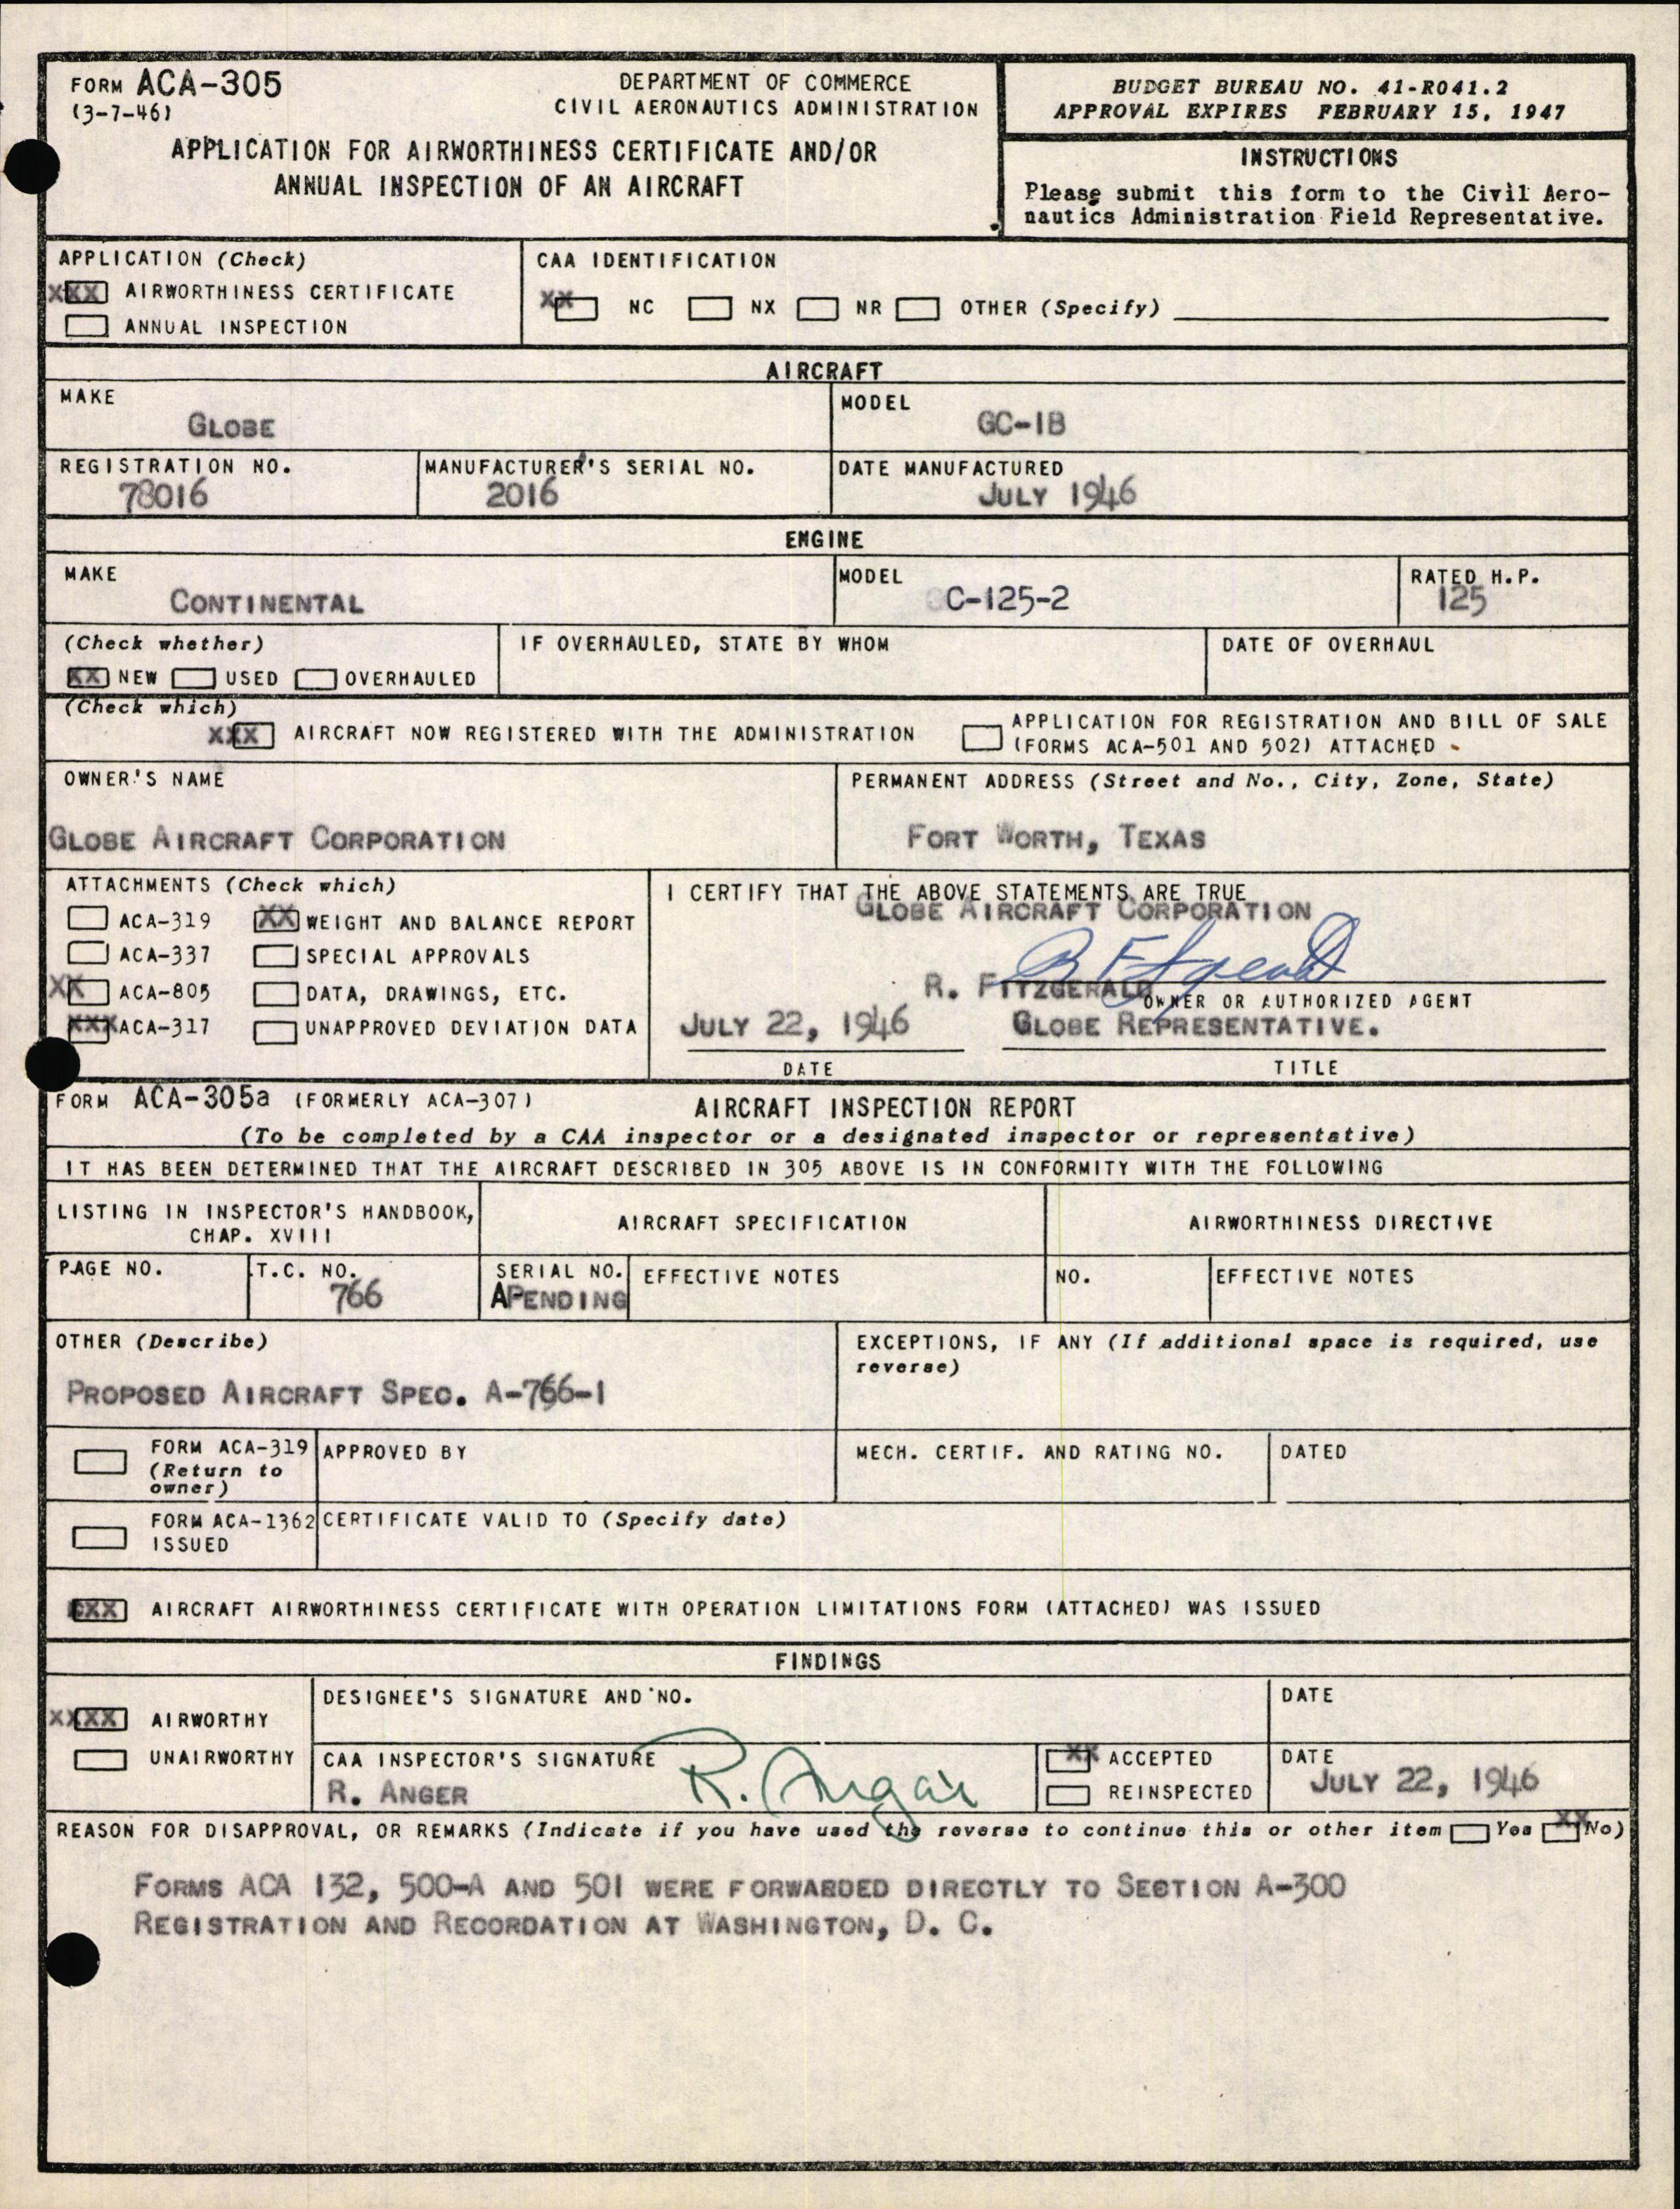 FORM ACA-305
(3-7-46)
DEPARTMENT OF COMMERCE
CIVIL AERONAUTICS ADMINISTRATION
APPLICATION FOR AIRWORTHINESS CERTIFICATE AND/OR
ANNUAL INSPECTION OF AN AIRCRAFT
BUDGET BUREAU NO. 41-R041.2
APPROVAL EXPIRES FEBRUARY 15, 1947
INSTRUCTIONS
Please submit this form to the Civil Aero-
nautics Administration Field Representative.
APPLICATION (Check)
XXX AIRWORTHINESS CERTIFICATE
ANNUAL INSPECTION
CAA IDENTIFICATION
XX NC NX NR OTHER (Specify)
AIRCRAFT
MAKE
GLOBE
MODEL
GC-1B
REGISTRATION NO.
78016
MANUFACTURER'S SERIAL NO.
2016
DATE MANUFACTURED
JULY 1946
ENGINE
MAKE
CONTINENTAL
MODEL
C-125-2
RATED H.P.
125
(Check whether)
XX NEW USED OVERHAULED
IF OVERHAULED, STATE BY WHOM
DATE OF OVERHAUL
(Check which)
XXX AIRCRAFT NOW REGISTERED WITH THE ADMINISTRATION
APPLICATION FOR REGISTRATION AND BILL OF SALE
(FORMS ACA-501 AND 502) ATTACHED
OWNER'S NAME
GLOBE AIRCRAFT CORPORATION
PERMANENT ADDRESS (Street and No., City, Zone, State)
FORT WORTH, TEXAS
ATTACHMENTS (Check which)
ACA-319 XX WEIGHT AND BALANCE REPORT
ACA-337 SPECIAL APPROVALS
XX ACA-805 DATA, DRAWINGS, ETC.
XXX ACA-317 UNAPPROVED DEVIATION DATA
I CERTIFY THAT THE ABOVE STATEMENTS ARE TRUE
GLOBE AIRCRAFT CORPORATION
R. FITZGERALD
OWNER OR AUTHORIZED AGENT
JULY 22, 1946 GLOBE REPRESENTATIVE.
DATE TITLE
FORM ACA-305a (FORMERLY ACA-307) AIRCRAFT INSPECTION REPORT
(To be completed by a CAA inspector or a designated inspector or representative)
IT HAS BEEN DETERMINED THAT THE AIRCRAFT DESCRIBED IN 305 ABOVE IS IN CONFORMITY WITH THE FOLLOWING
LISTING IN INSPECTOR'S HANDBOOK,
CHAP. XVIII
AIRCRAFT SPECIFICATION
AIRWORTHINESS DIRECTIVE
PAGE NO.
T.C. NO.
766
SERIAL NO.
APENDING
EFFECTIVE NOTES
NO.
EFFECTIVE NOTES
OTHER (Describe)
PROPOSED AIRCRAFT SPEC. A-766-1
EXCEPTIONS, IF ANY (If additional space is required, use
reverse)
FORM ACA-319
(Return to
owner)
APPROVED BY
MECH. CERTIF. AND RATING NO.
DATED
FORM ACA-1362
ISSUED
CERTIFICATE VALID TO (Specify date)
XXX AIRCRAFT AIRWORTHINESS CERTIFICATE WITH OPERATION LIMITATIONS FORM (ATTACHED) WAS ISSUED
FINDINGS
XXXX AIRWORTHY
UNAIRWORTHY
DESIGNEE'S SIGNATURE AND NO.
DATE
CAA INSPECTOR'S SIGNATURE
R. ANGER
R. Anger
XX ACCEPTED
REINSPECTED
DATE
JULY 22, 1946
REASON FOR DISAPPROVAL, OR REMARKS (Indicate if you have used the reverse to continue this or other item Yes XX No)
FORMS ACA 132, 500-A AND 501 WERE FORWARDED DIRECTLY TO SECTION A-300
REGISTRATION AND RECORDATION AT WASHINGTON, D. C.